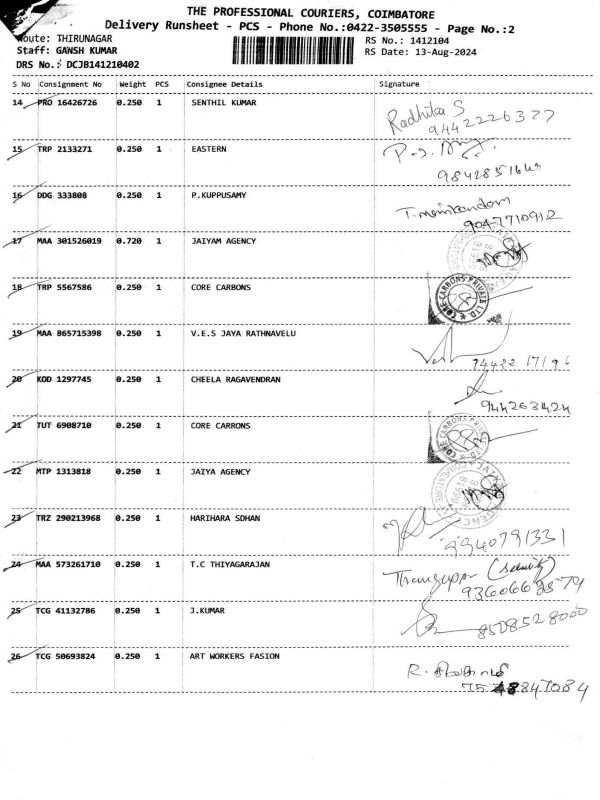 THE PROFESSIONAL COURIERS, COIMBATORE
Delivery Runsheet - PCS - Phone No.:0422-3505555 - Page No.:2
Route: THIRUNAGAR RS No.: 1412104
Staff: GANSH KUMAR RS Date: 13-Aug-2024
DRS No.: DCJB141210402
S No Consignment No Weight PCS Consignee Details Signature
14 PRO 16426726 0.250 1 SENTHIL KUMAR Radhika S
9442226377
15 TRP 2133271 0.250 1 EASTERN
16 DDG 333808 0.250 1 P.KUPPUSAMY T. manikandam
9047710912
17 MAA 301526019 0.720 1 JAIYAM AGENCY
18 TRP 5567586 0.250 1 CORE CARBONS
CORE CARBONS PRIVATE LTD.
19 MAA 865715398 0.250 1 V.E.S JAYA RATHNAVELU
20 KOD 1297745 0.250 1 CHEELA RAGAVENDRAN
21 TUT 6908710 0.250 1 CORE CARRONS
22 MTP 1313818 0.250 1 JAIYA AGENCY
23 TRZ 290213968 0.250 1 HARIHARA SDHAN
9940791331
24 MAA 573261710 0.250 1 T.C THIYAGARAJAN (Security)
25 TCG 41132786 0.250 1 J.KUMAR
8508528000
26 TCG 50693824 0.250 1 ART WORKERS FASION R.